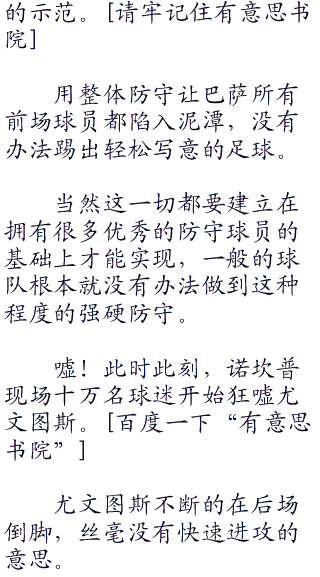 的示范。[请牢记住有意思书
院]
用整体防守让巴萨所有
前场球员都陷入泥潭，没有
办法踢出轻松写意的足球。
当然这一切都要建立在
拥有很多优秀的防守球员的
基础上才能实现，一般的球
队根本就没有办法做到这种
程度的强硬防守。
嘘！此时此刻，诺坎普
现场十万名球迷开始狂嘘尤
文图斯。[百度一下“有意思
书院”]
尤文图斯不断的在后场
倒脚，丝毫没有快速进攻的
意思。